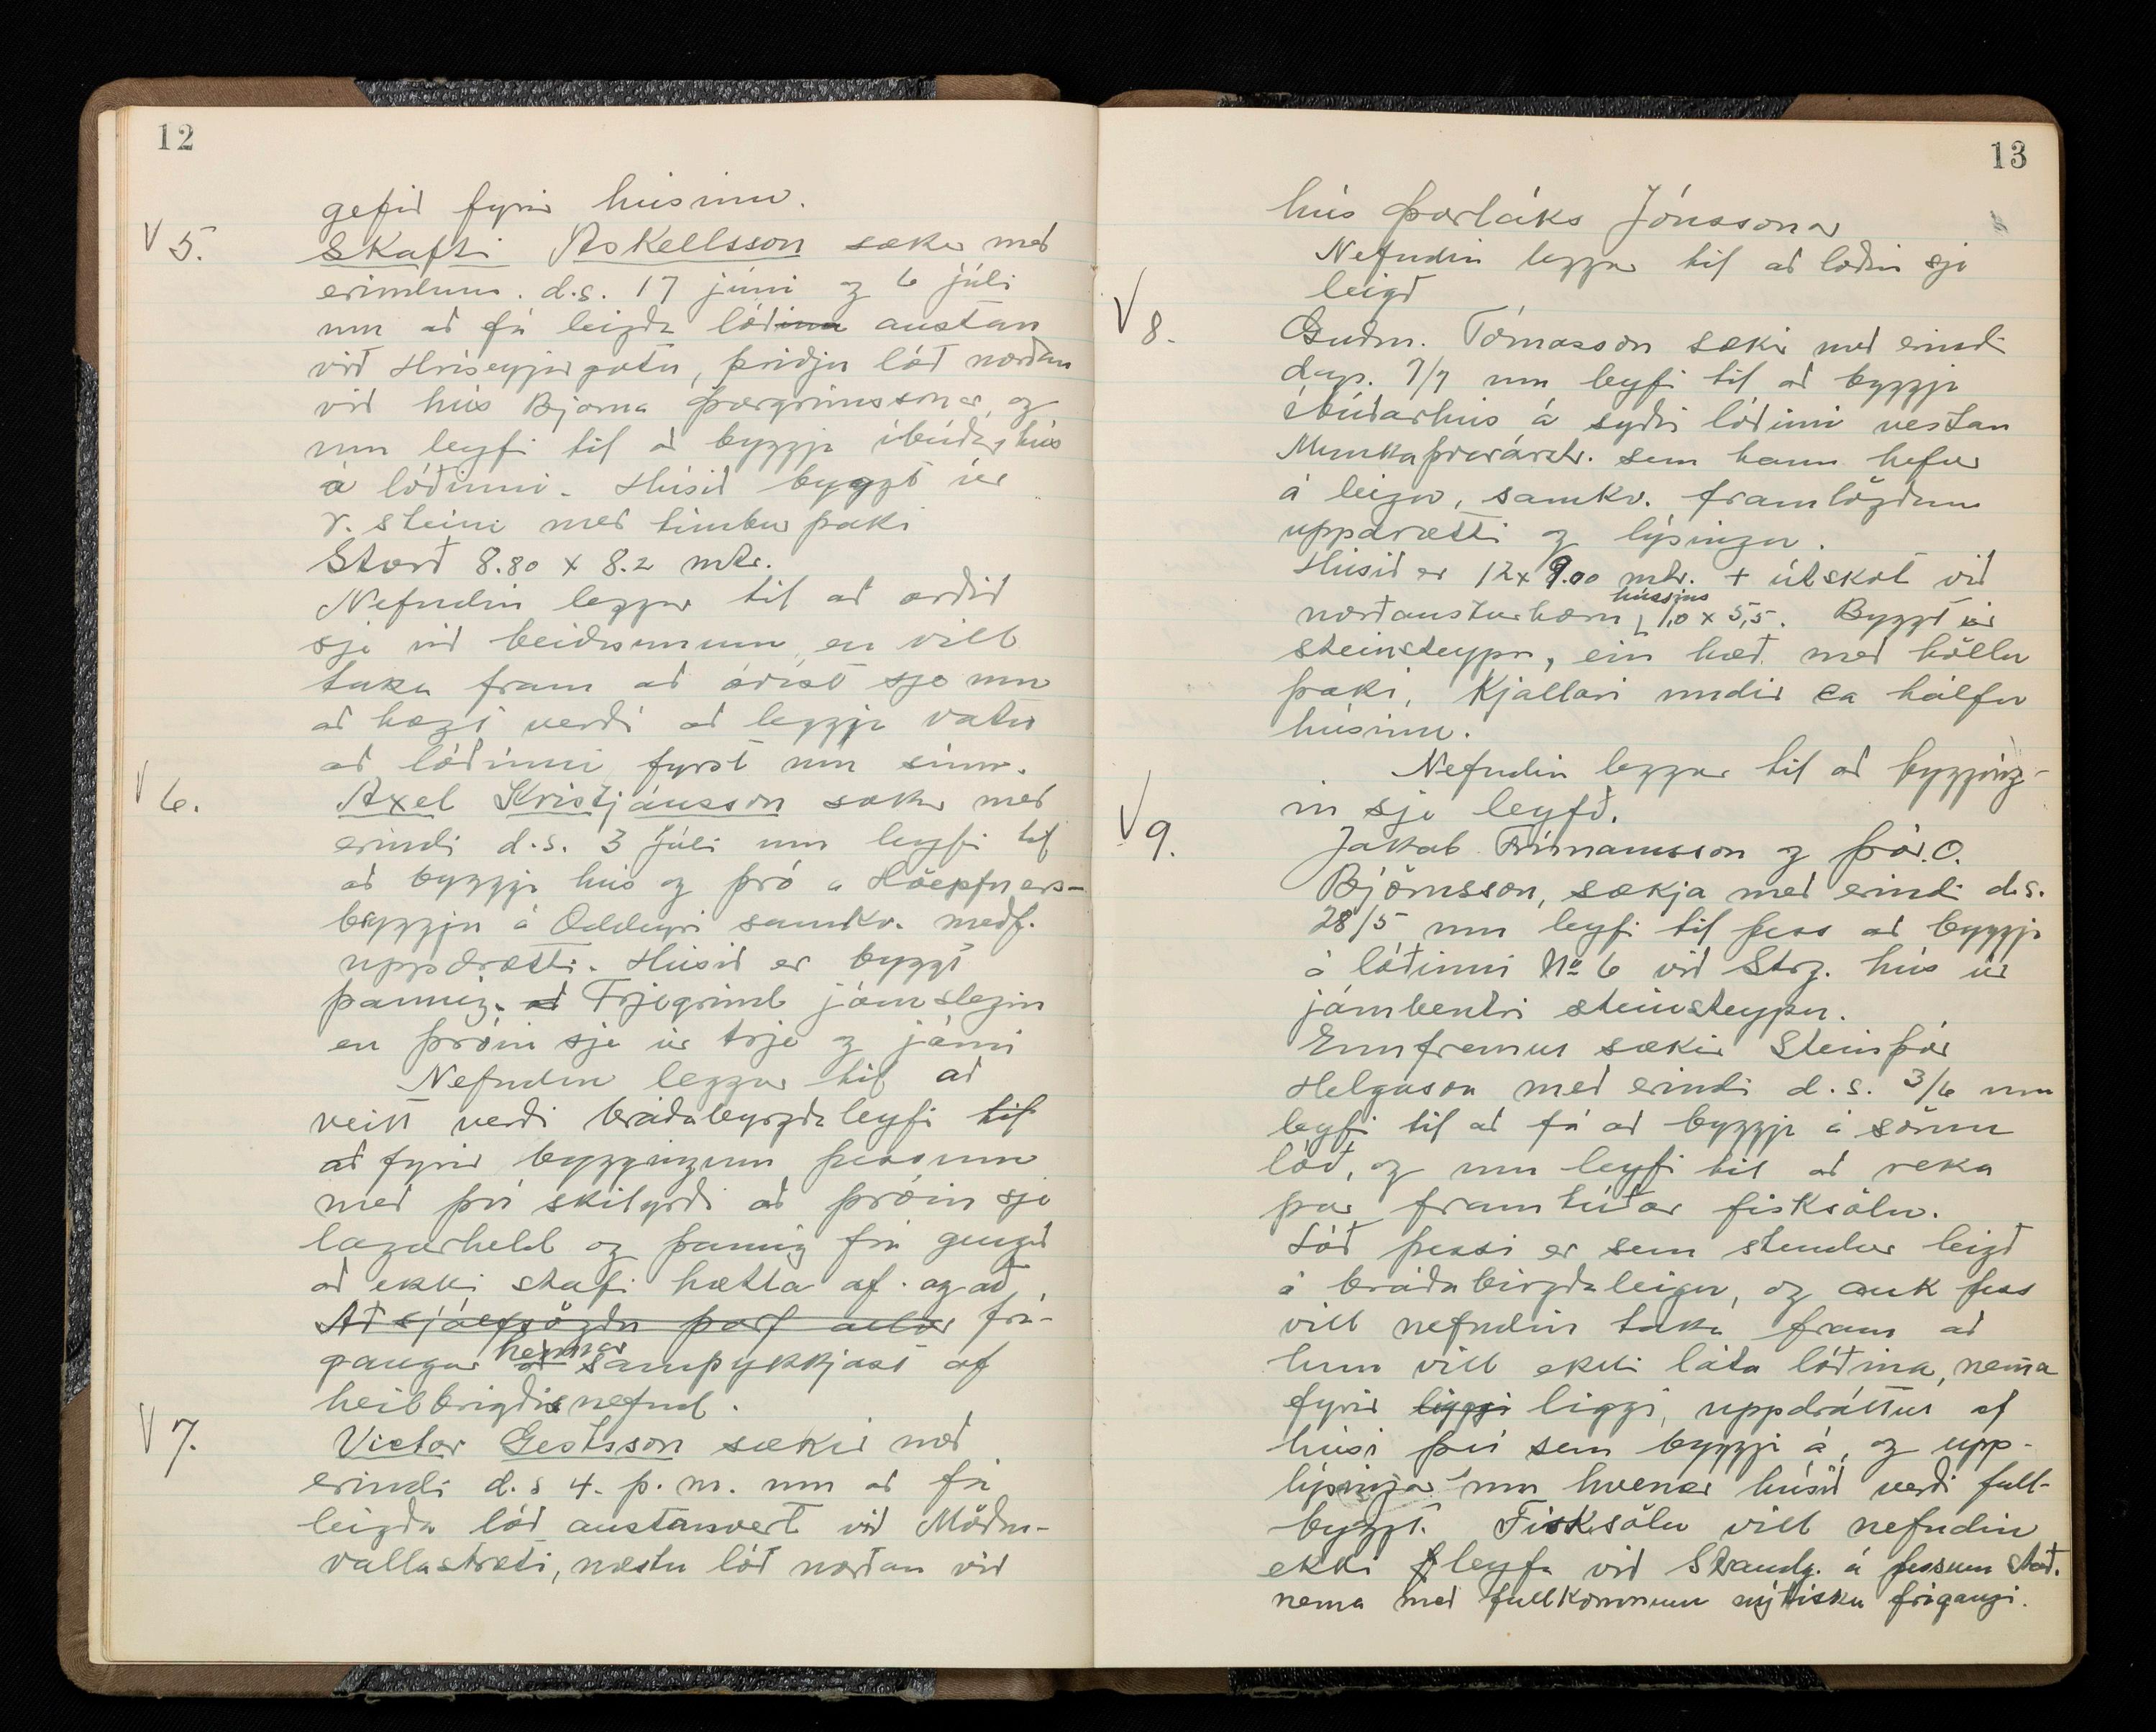 12
gefið fyrir húsinu.
V 5. Skafti Áskellsson sækir með
erindum. d.s. 17 júni og 6 júli
um að fá leigða lóðina austan
við Hríseyjargötu, þriðju lóð norðan
við hús Bjarna Þorgrímssonar, og
um leyfi til að byggja íbúðarhús
á lóðinni. Húsið byggt úr
r. steini með timbur þaki
Stærð 8.80 x 8.2 mtr.
Nefndin leggur til að orðið
sje við beiðnunum, en vill
taka fram að óvíst sje um
að hægt verði að leggja vatn
að lóðinni fyrst um sinn.
V 6. Axel Kristjánsson sækir með
erindi d.s. 3 júli um leyfi til
að byggja hús og þró á Höepfners-
bryggju á Oddeyri samkv. meðf.
uppdrætti. Húsið er byggt
þannig. að Trjegrind járnslegin
en þróin sje úr trje og járni
Nefndin leggur til að
veitt verði bráðabyrgðaleyfi til
að fyrir byggingum þessum
með því skilyrði að þróin sje
lagarheld og þannig frá gengið
að ekki stafi hætta af. og að
Að sjálfsögðu þarf allur frá-
gangur hennar að samþykkjast af
heilbrigðisnefnd.
V 7. Victor Gestsson sækir með
erindi d.s 4. þ.m. um að fá
leigða lóð austanvert við Möðru-
vallastræti, næstu lóð norðan við
13
hús Þorláks Jónssonar
Nefndin leggur til að lóðin sje
leigð
V 8. Guðm. Tómasson sækir með erindi
dags. 7/7 um leyfi til að byggja
íbúðarhús á syðri lóðinni vestan
Munkaþverárstr. sem hann hefur
á leigu, samkv. framlögðum
uppdrætti og lýsingu.
Húsið er 12x9.00 mtr. + útskot við
norðausturhorn hússins 1,0 x 5,5. Byggt úr
steinsteypu, ein hæð með höllu
þaki, Kjallari undir ca hálfu
húsinu.
Nefndin leggur til að bygging-
in sje leyfð.
V 9. Jakob Frímannsson og Þór. O.
Björnsson, sækja með erindi d.s.
28/5 um leyfi til þess að byggja
á lóðinni No 6 við Strg. hús úr
járnbentri steinsteypu.
Ennfremur sækir Steinþór
Helgason með erindi d.s. 3/6 um
leyfi til að fá að byggja á sömu
lóð, og um leyfi til að reka
þar framtíðar fisksölu.
Lóð þessi er sem stendur leigð
á bráðabirgðaleigu, og auk þess
vill nefndin taka fram að
hún vill ekki láta lóðina, nema
fyrir liggi liggi, uppdráttur af
húsi því sem byggja á, og upp-
lýsingar um hvenær húsið verði full-
byggt. Fisksölu vill nefndin
ekki leyfa við Strandg. á þessum stað.
nema með fullkomnum nýtísku frágangi.